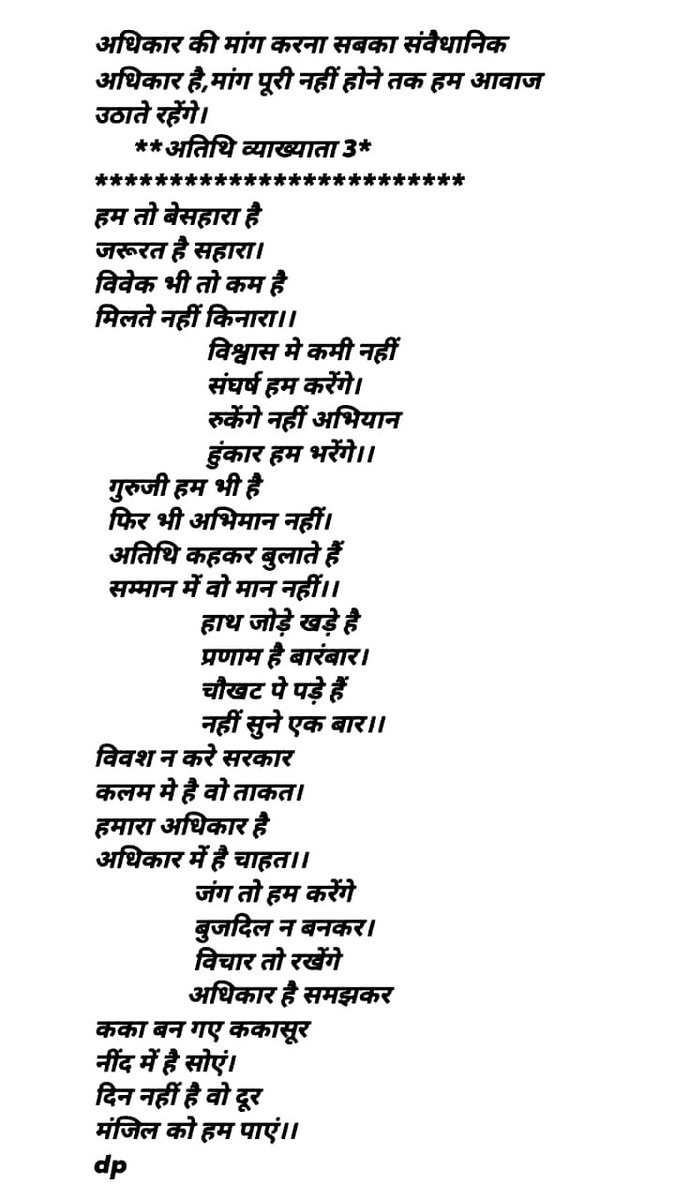 अधिकार की मांग करना सबका संवैधानिक
अधिकार है,मांग पूरी नहीं होने तक हम आवाज
उठाते रहेंगे।
**अतिथि व्याख्याता 3*
*************************
हम तो बेसहारा है
जरूरत है सहारा।
विवेक भी तो कम है
मिलते नहीं किनारा।।
विश्वास मे कमी नहीं
संघर्ष हम करेंगे।
रुकेंगे नहीं अभियान
हुंकार हम भरेंगे।।
गुरुजी हम भी है
फिर भी अभिमान नहीं।
अतिथि कहकर बुलाते हैं
सम्मान में वो मान नहीं।।
हाथ जोड़े खड़े है
प्रणाम है बारंबार।
चौखट पे पड़े हैं
नहीं सुने एक बार।।
विवश न करे सरकार
कलम मे है वो ताकत।
हमारा अधिकार है
अधिकार में है चाहत।।
जंग तो हम करेंगे
बुजदिल न बनकर।
विचार तो रखेंगे
अधिकार है समझकर
कका बन गए ककासूर
नींद में है सोएं।
दिन नहीं है वो दूर
मंजिल को हम पाएं।।
dp